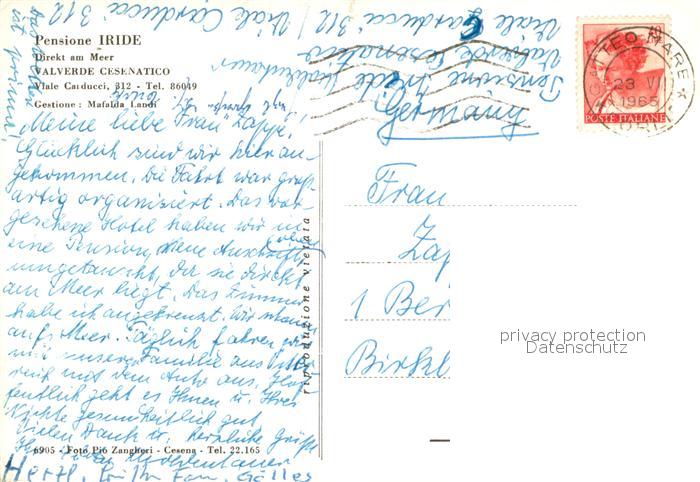 Pensione IRIDE
Direkt am Meer
VALVERDE CESENATICO
Viale Carducci, 312 - Tel. 86049
Gestione : Mafalda Landi
Meine liebe Frau Zappe,
Glücklich sind wir hier an-
gekommen. Die Fahrt war groß-
artig organisiert. Das vor-
gesehene Hotel haben wir in
eine Pension,
umgetauscht, da sie direkt
am Meer liegt. Das Zimmer
habe ich angekreuzt. Wir schauen
aufs Meer. Täglich fahren wir
mit unserer Familie aus
mit dem Auto aus. Hof-
fentlich geht es Ihnen u. Ihrer
Nichte gesundheitlich gut
Vielen Dank u. herzliche Grüße
6905 - Foto Pio Zangheri - Cesena - Tel. 22.165
Herzl. Fam. Gölles
riproduzione vietata
Pensione Iride
Valverde Cesenatico
Viale Carducci 312 / Viale Carducci 312
Germany
Frau
Zap
1 Ber
Birkb
POSTE ITALIANE
23 VI
1965
privacy protection
Datenschutz